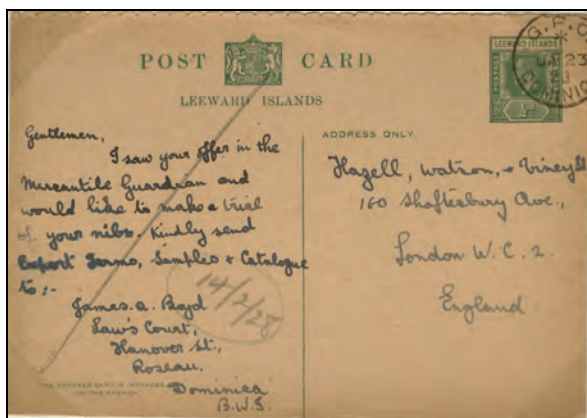 POST CARD
LEEWARD ISLANDS
LEEWARD ISLANDS
G.P.O.
DOMINIC
Gentlemen,
I saw your offer in the
Mercantile Guardian and
would like to make a trial
of your nibs. Kindly send
Export Terms, Samples & Catalogue
to :-
James. A. Boyd
Law's Court,
Hanover St.,
Roseau,
Dominica
B.W.I.
14/2/28
ADDRESS ONLY.
Hazell, Watson, & Viney Ld
160 Shaftesbury Ave.,
London W.C. 2.
England